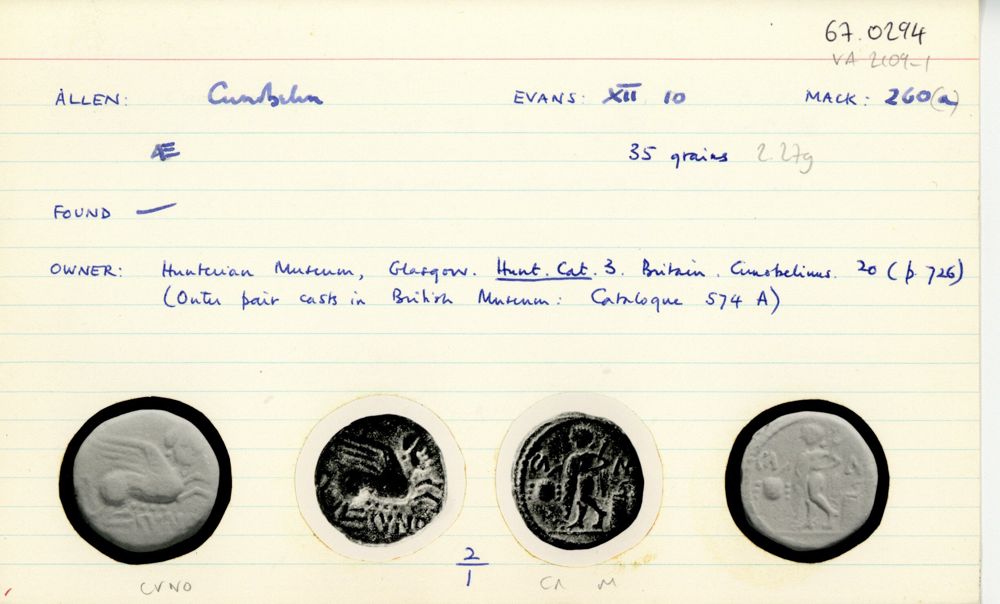 67.0294
VA 2109-1
ALLEN: Cunobelin EVANS: XII 10 MACK: 260(a)
Æ 35 grains 2.27g
FOUND —
OWNER: Hunterian Museum, Glasgow. Hunt. Cat. 3. Britain. Cunobelinus. 20 (p. 726)
(Outer pair casts in British Museum: Catalogue 574 A)
CVNO
2/1
CVNO CA M